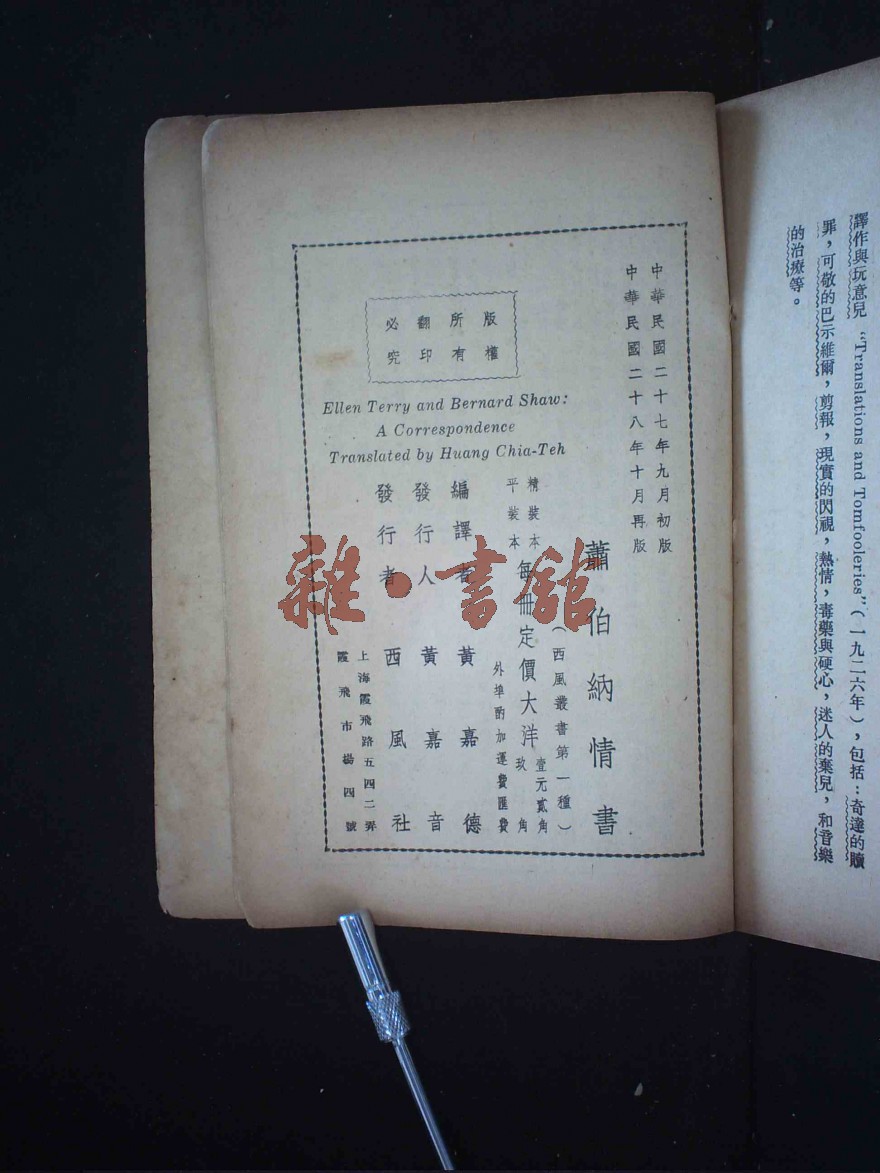 譯作與玩意兒 “Translations and Tomfooleries”(一九二六年),包括:奇達的贖
罪,可敬的巴示維爾,剪報,現實的閃視,熱情,毒藥與硬心,迷人的棄兒,和音樂
的治療等。
中華民國二十七年九月初版
中華民國二十八年十月再版
蕭伯納情書
(西風叢書第一種)
精裝本
平裝本
每冊定價大洋
壹元貳角
玖角
外埠酌加運費匯費
編譯者 黃嘉德
發行人 黃嘉音
發行者 西風社
上海霞飛路五四二弄
霞飛市場四號
版權
所有
翻印
必究
Ellen Terry and Bernard Shaw:
A Correspondence
Translated by Huang Chia-Teh
雜·書館